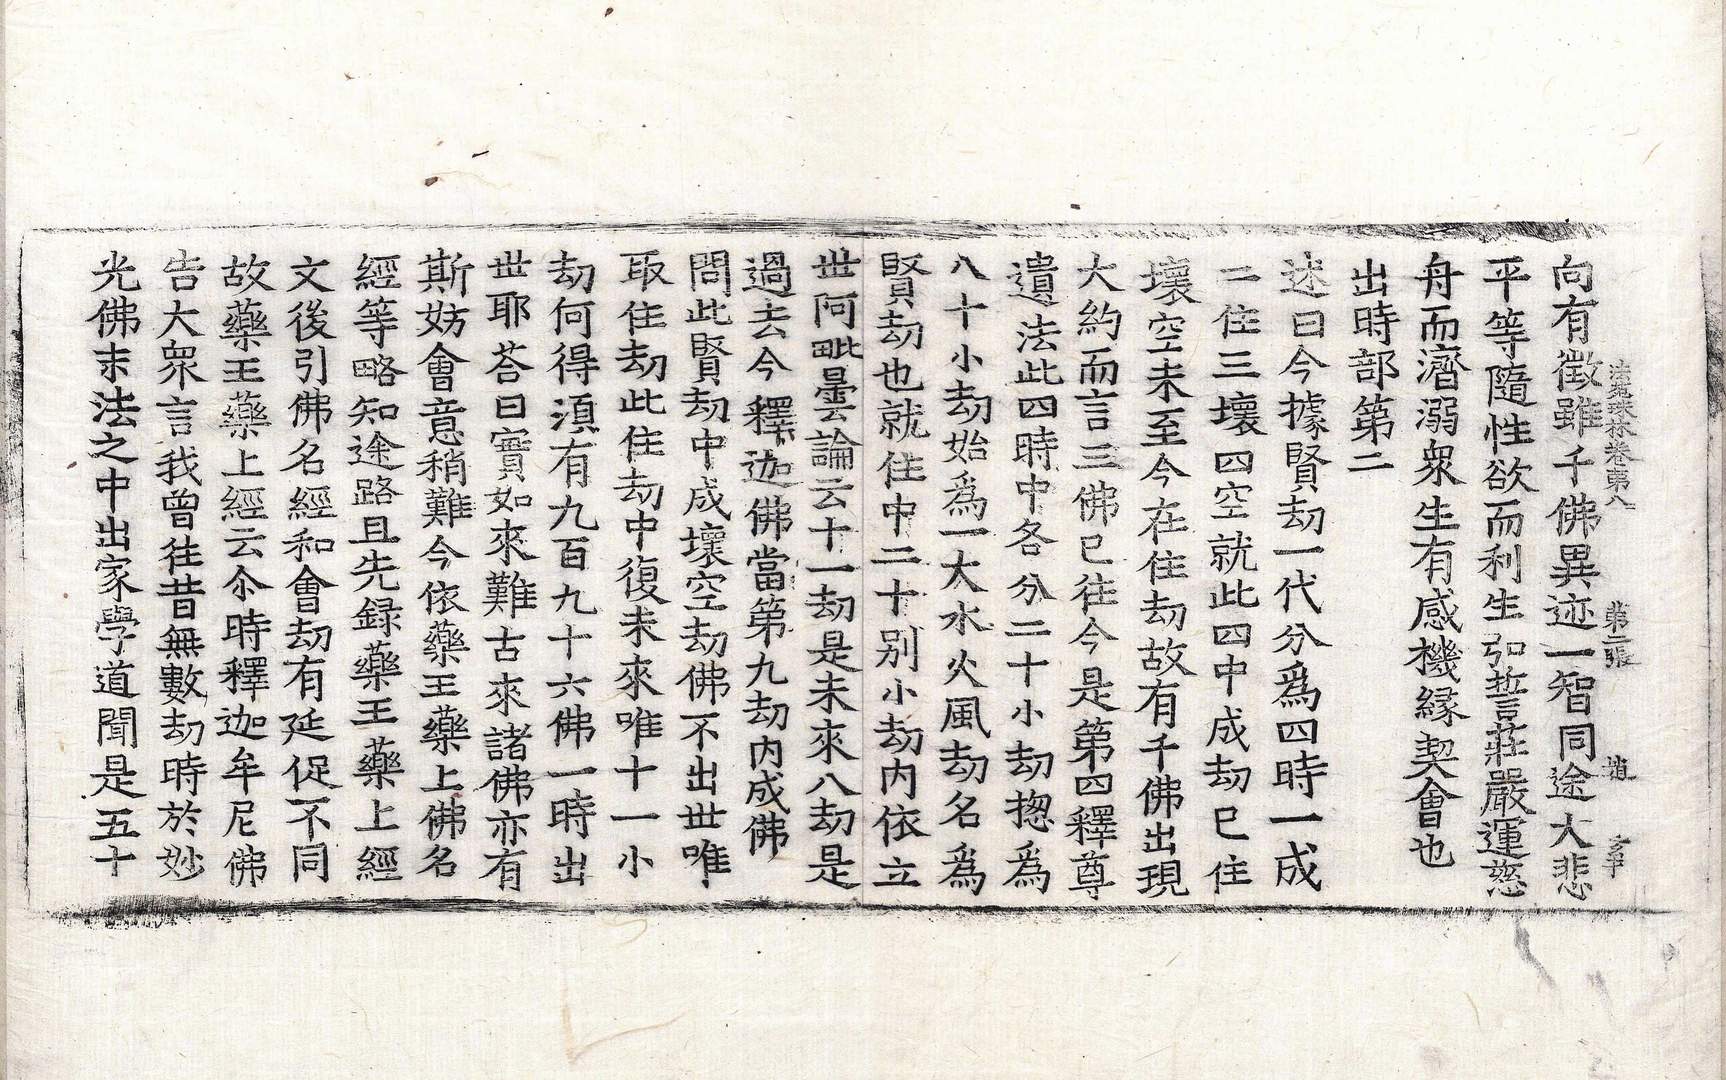 法苑珠林卷第八 第二張 趙
向有徵雖千佛異迹一智同途大悲
平等隨性欲而利生弘誓莊嚴運慈
舟而濟溺衆生有感機緣契會也
出時部第二
述曰今據賢劫一代分爲四時一成
二住三壞四空就此四中成劫已住
壞空未至今在住劫故有千佛出現
大約而言三佛已往今是第四釋尊
遺法此四時中各分二十小劫揔爲
八十小劫始爲一大水火風劫名爲
賢劫也就住中二十別小劫內依立
世阿毗曇論云十一劫是未來八劫是
過去今釋迦佛當第九劫內成佛
問此賢劫中成壞空劫佛不出世唯
取住劫此住劫中復未來唯十一小
劫何得湏有九百九十六佛一時出
世耶荅曰實如來難古來諸佛亦有
斯妨會意稍難今依藥王藥上佛名
經等略知途路且先録藥王藥上經
文後引佛名經和會劫有延促不同
故藥王藥上經云尒時釋迦牟尼佛
告大衆言我曾往昔無數劫時於妙
光佛末法之中出家學道聞是五十